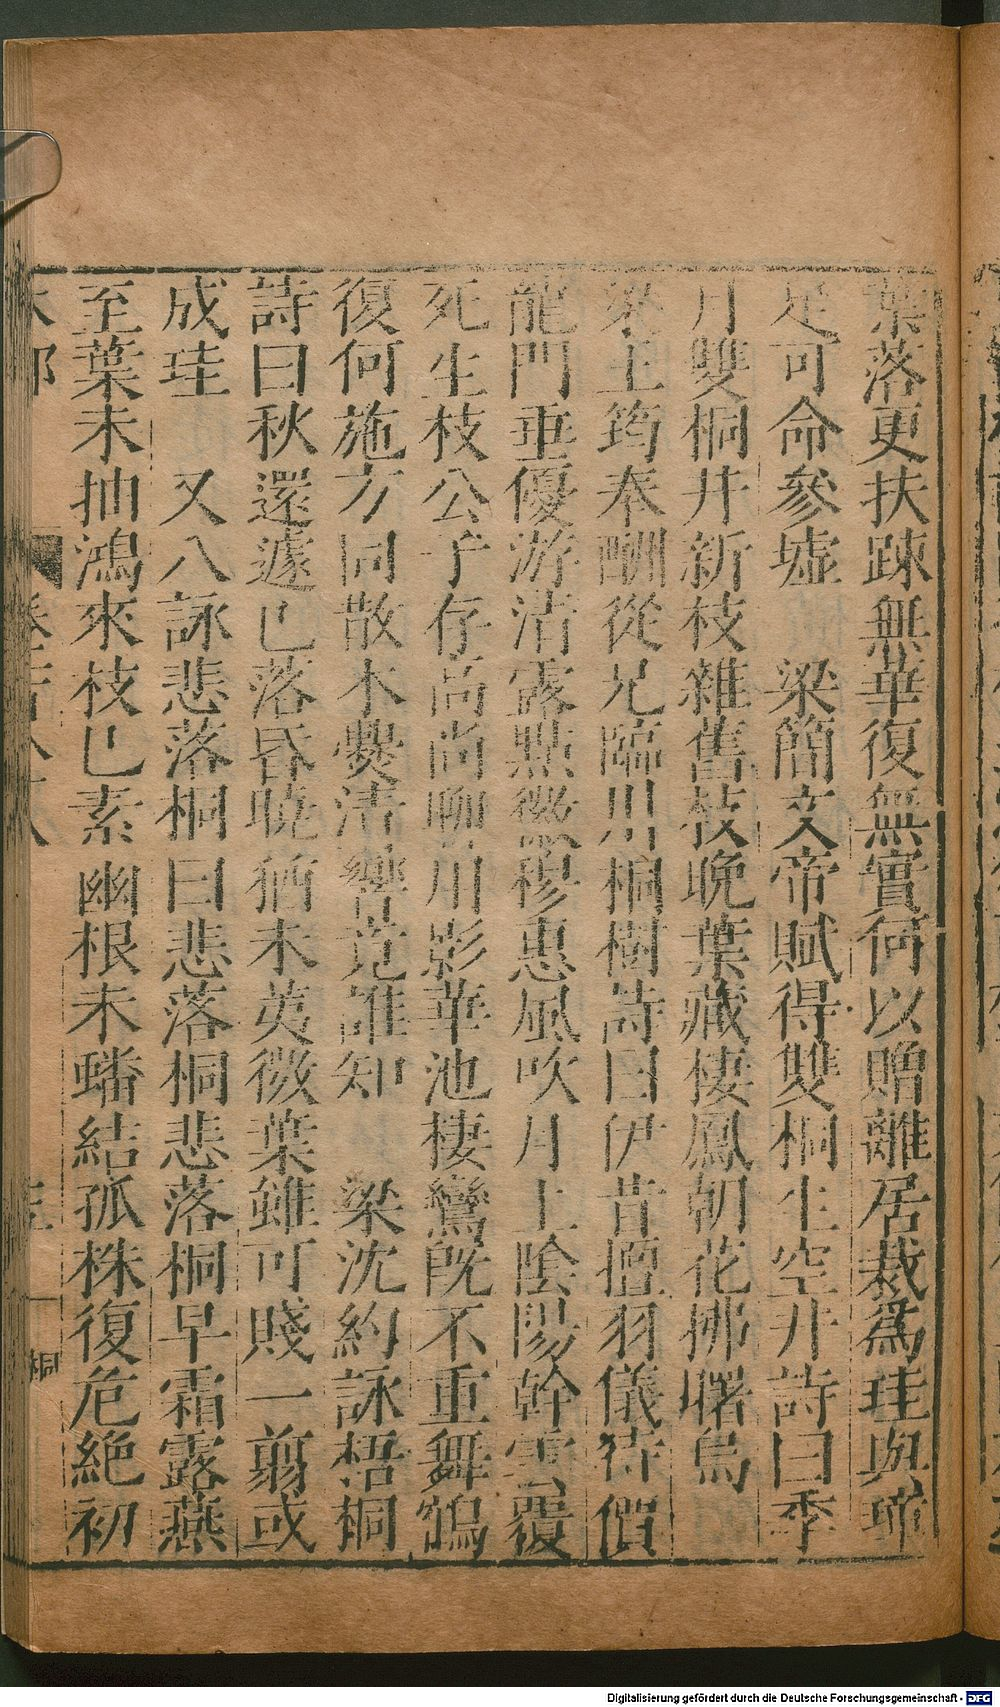 葉落更扶踈無華復無實何以贈離居裁爲珪與瑞
足可命參墟　梁簡文帝賦得雙桐生空井詩曰季
月雙桐井新枝雜舊枝晚葉藏棲鳳朝花拂曙烏
梁王筠奉酬從兄臨川桐樹詩曰伊昔擅羽儀待價
龍門垂優游清露點徽穆惠風吹月上陰陽幹雲覆
死生枝公子存高尚聊用影華池棲鸞旣不重舞鶴
復何施方同散木爨清響竟誰知　梁沈約詠梧桐
詩曰秋還遽已落昏曉猶未荑微葉雖可賤一翦或
成珪　又八詠悲落桐曰悲落桐悲落桐早霜露燕
至葉未抽鴻來枝已素幽根未蟠結孤株復危絕初
木部
桐
Digitalisierung gefördert durch die Deutsche Forschungsgemeinschaft - DFG